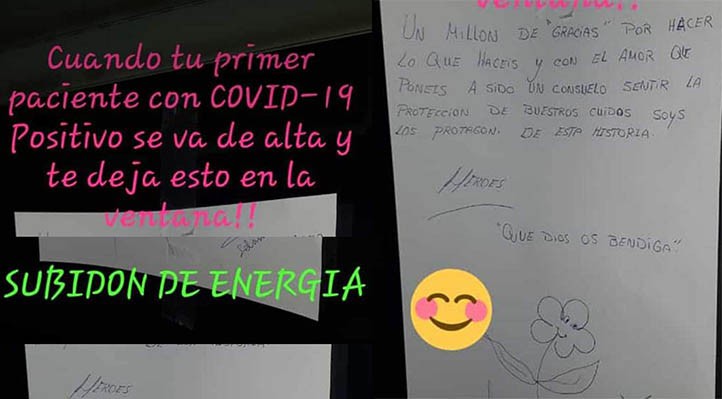 Cuando tu primer
paciente con COVID-19
Positivo se va de alta y
te deja esto en la
ventana!!
SUBIDON DE ENERGIA
HEROES
ventana!!
UN MILLON DE "GRACIAS" POR HACER
LO QUE HACEIS Y CON EL AMOR QUE
PONEIS A SIDO UN CONSUELO SENTIR LA
PROTECCION DE BUESTROS CUIDOS SOYS
LOS PROTAGON. DE ESTA HISTORIA.
HEROES
"QUE DIOS OS BENDIGA"